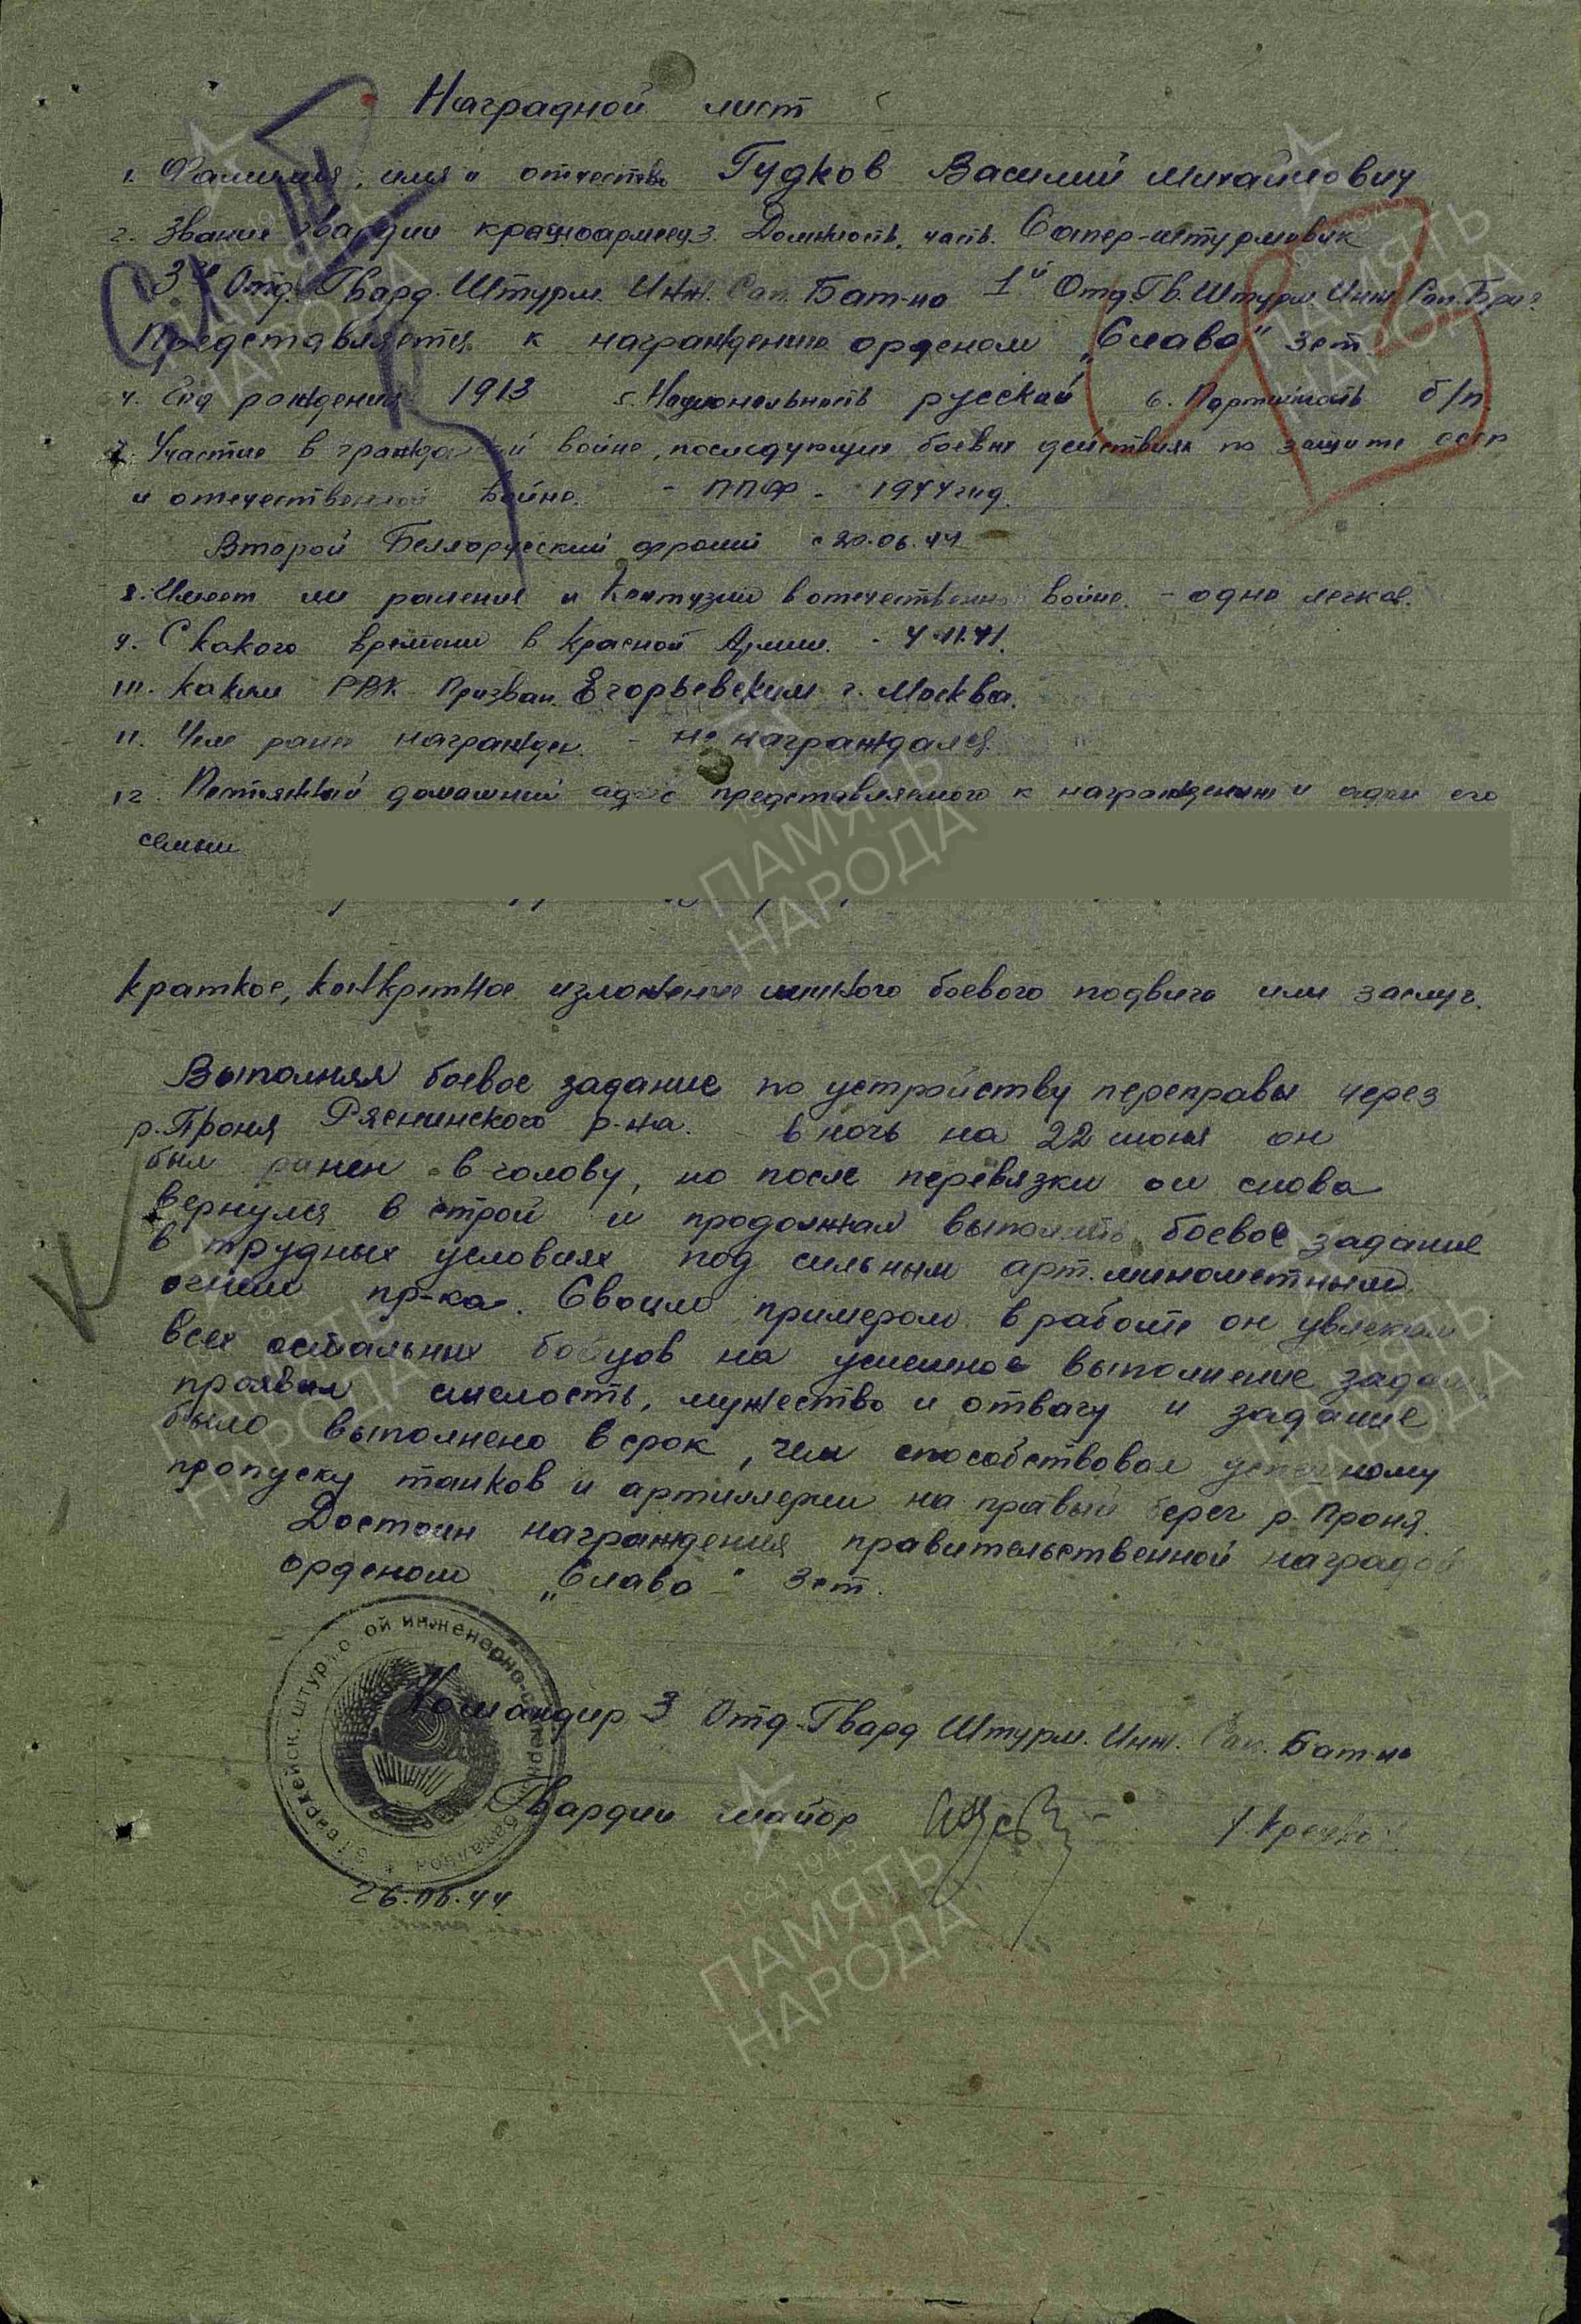 Наградной лист
1. Фамилия, имя и отчество Гудков Василий Михайлович
2. Звание гвардии красноармеец 3. Должность, часть. Сапер-штурмовик
3ий Отд. Гвард. Штурм. Инж. Сап. Бат-на 1й Отд. Гв. Штурм. Инж. Сап. Бриг.
Представляется к награждению орденом „Слава" 3 ст.
4. Год рождения 1913 5. Национальность русский 6. Партийность б/п.
7. Участие в гражданской войне, последующие боевые действиях по защите ссср
и отечественной войне. - ППФ - 1944 год.
Второй Белорусский фронт с 20.06.44
8. Имеет ли ранения и контузии в отечественной войне. - одно легкое.
9. С какого времени в Красной Армии. -
10. Каким РВК призван. Егорьевским г. Москва.
11. Чем ранее награжден. - не награждался
12. Постоянный домашний адрес представляемого к награждению и адрес его
семьи
Краткое, конкретное изложение личного боевого подвига или заслуг.
Выполняя боевое задание по устройству переправы через
р. Проня Ряснинского р-на. в ночь на 22 июня он
был ранен в голову, но после перевязки он снова
вернулся в строй и продолжал выполнять боевое задание
в трудных условиях под сильным арт. минометным
огнем пр-ка. Своим примером в работе он увлекал
всех остальных бойцов на успешное выполнение
проявил смелость, мужество и отвагу и задание
было выполнено в срок, чем способствовал успешному
пропуску танков и артиллерии на правый берег р. Проня.
Достоин награждения правительственной наградой
орденом „Слава" 3 ст.
Командир 3 Отд. Гвард Штурм. Инж. Сап. Бат-на
Гвардии майор
26.06.44
ПАМЯТЬ
НАРОДА
1941 1945